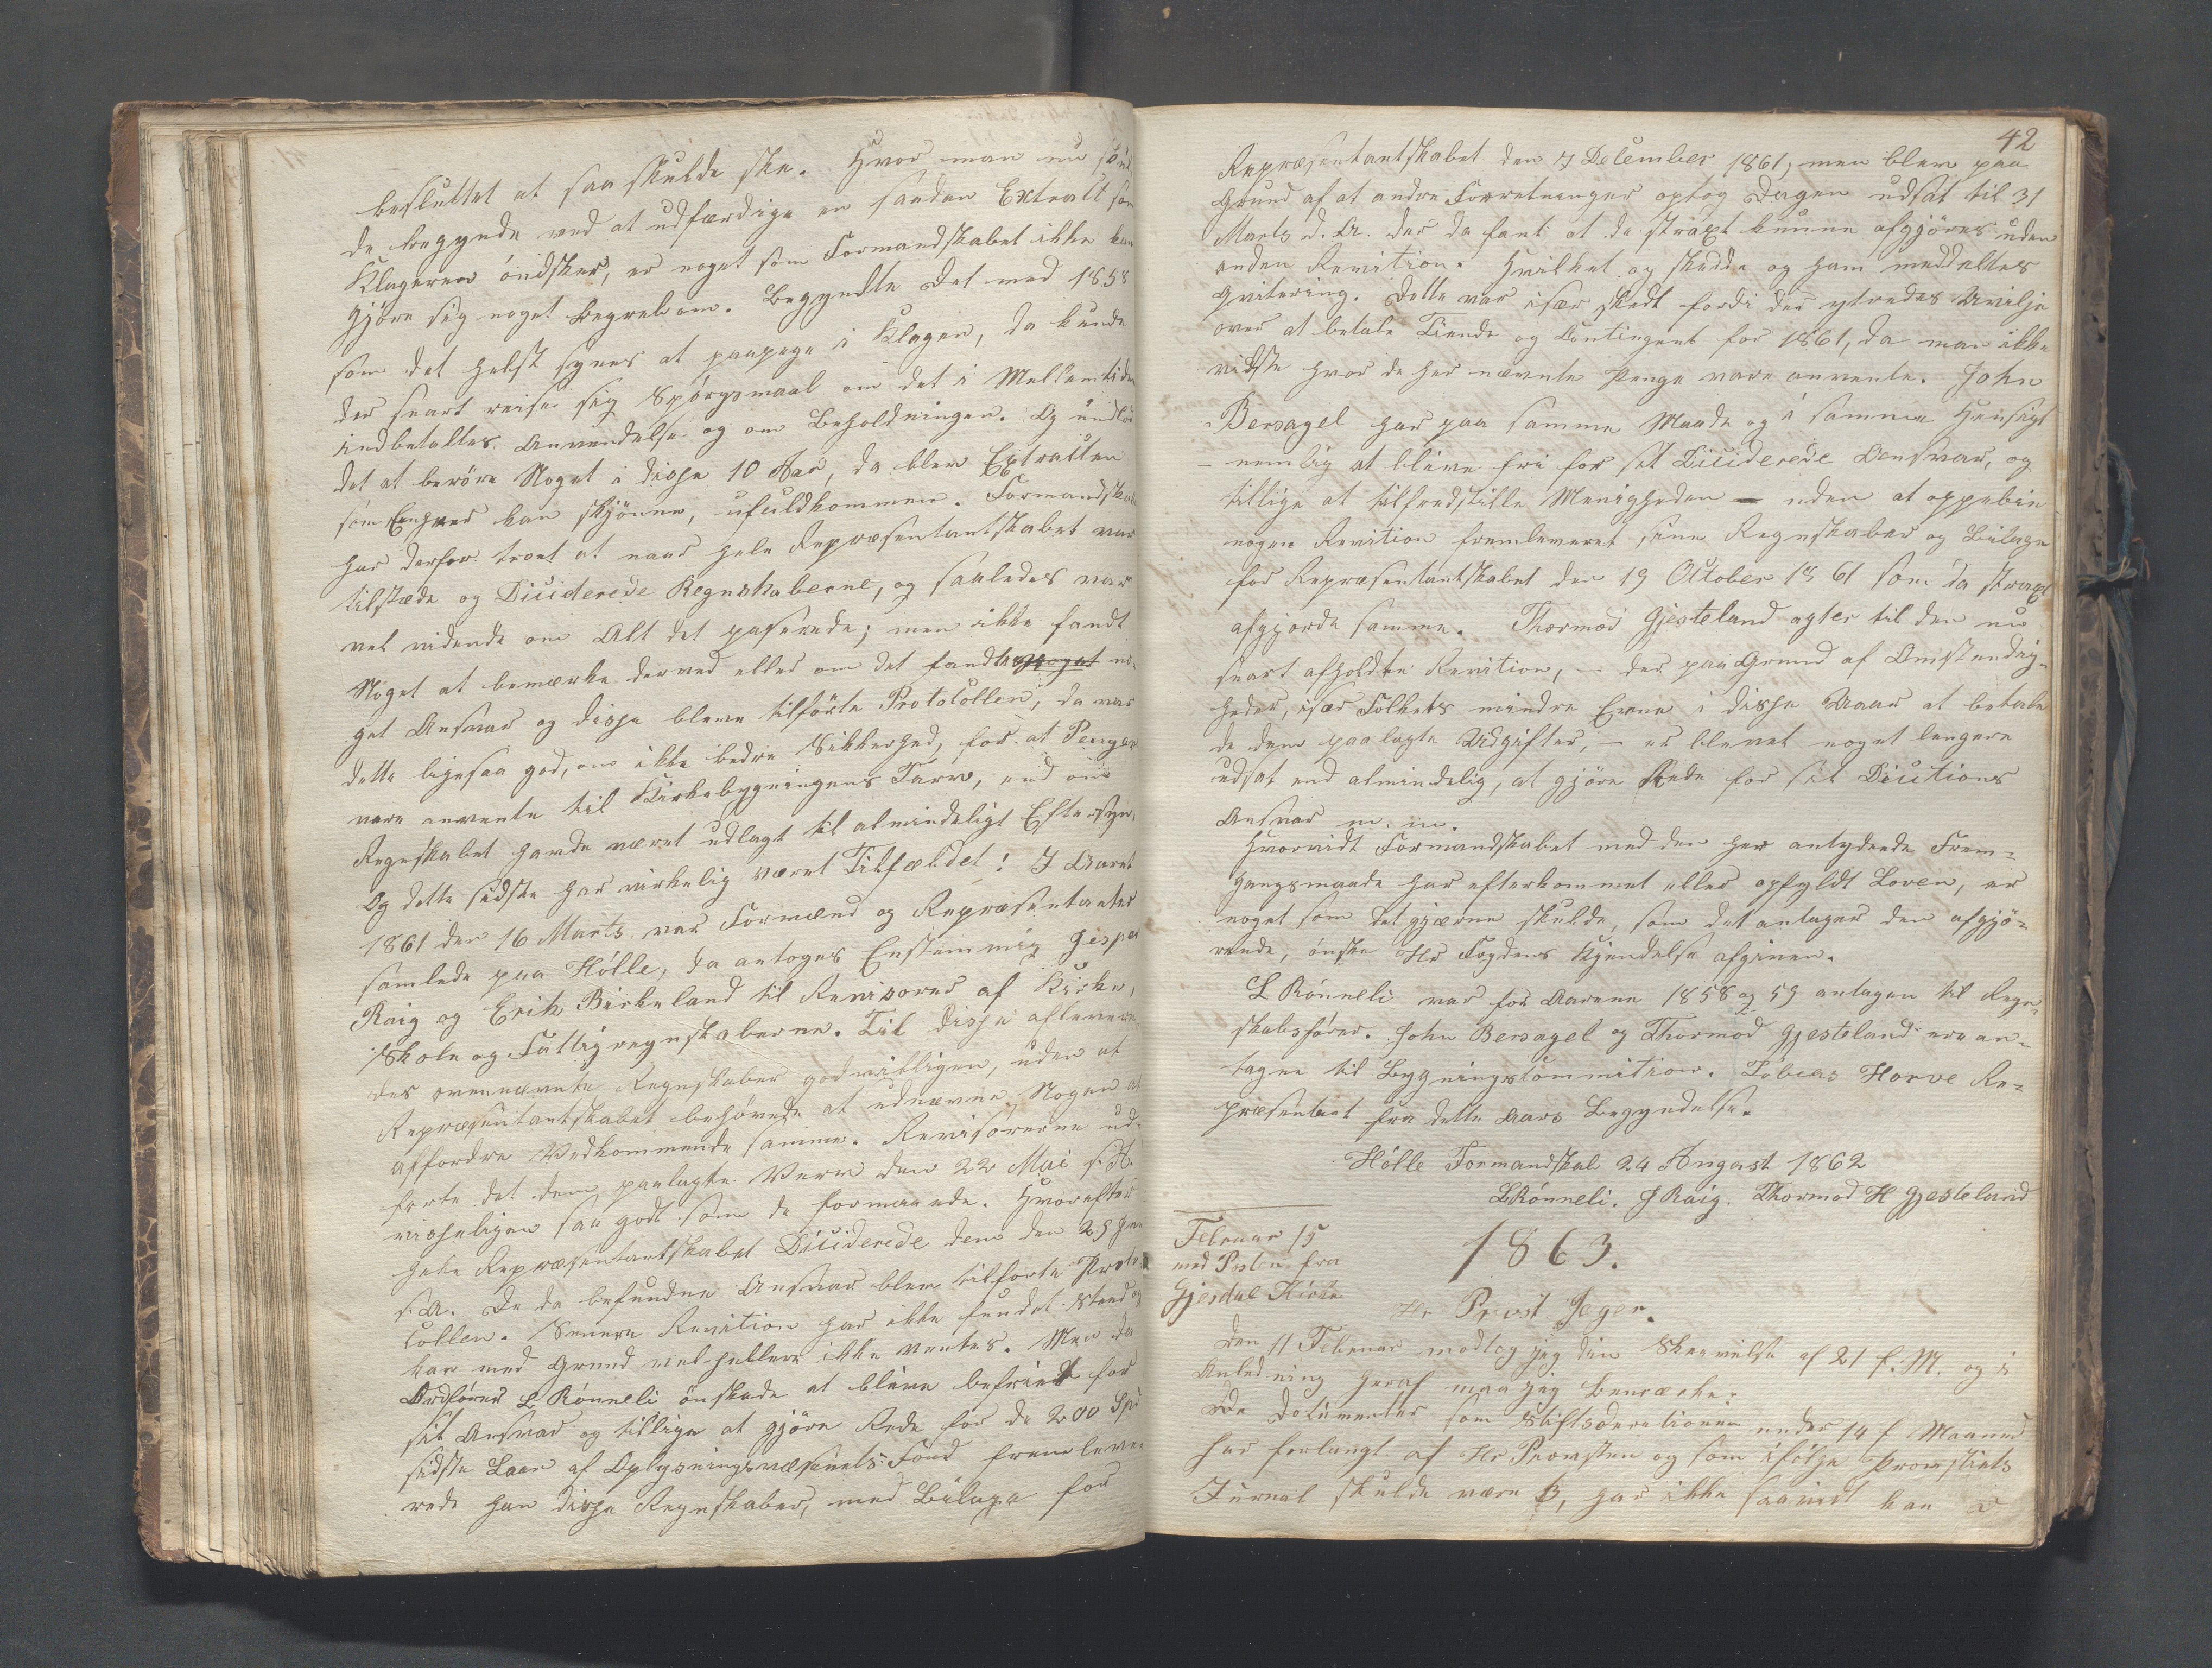 besluttet at saa skulde ske. Hvor man nu skul
de begynde ved at udfærdige en saadan Extrakt som
Klageren öndsker, er noget som Formandskabet ikke kan
gjöre sig noget Begreb om. Begyndte det med 1858
som det helst synes at paapege i Klagen, da kunde
der snart reise sig Spörgsmaal om det i Mellemtiden
indbetaltes Anvendelse og om Beholdningen. Og undlod
det at beröre Noget i disse 10 Aar, da blev Extrakten
som Enhver kan skjönne, ufuldkommen. Formandskabet
har derfor troet at naar hele Repræsentantskabet var
tilstæde og Diciderede Regnskaberne, og saaledes var
vel vidende om Alt det paserede; men ikke fandt
Noget at bemærke derved eller om det fandt noget no-
get Ansvar og disse bleve tilförte Protocollen, da var
dette ligesaa god, om ikke bedre Sikkerhed, for at Pengene
vare anvente til Kirkebygningens Tarv, end om
Regnskabet havde været udlagt til almindeligt Eftersyn,
Og dette sidste har virkelig været Tilfældet! I Aaret
1861 den 16 Marts var Formænd og Repræsentanter
samlede paa Hölle, da antoges Enstemmig Jesper
Raig og Erik Birkeland til Revisorer af Kirke,
Skole og Fattigregnskaberne. Til disse aflevere
des ovennævnte Regnskaber godvilligen, uden at
Repræsentantskabet behövede at udnævne Nogen at
affordre Vedkommende samme. Revisorerne ud-
förte det dem paalagte Verv den 22 Mai s. A.
visseligen saa godt som de formaaede. Hvorefter
hele Repræsentantskabet Diciderede dem den 25 Juni
s. A. De da befundne Ansvar blev tilförte Proto
collen. Senere Revition har ikke fundet Sted og
kan med Grund vel hellere ikke ventes. Men da
Ordförer L Rönneli önskede at blive befriet for
sit Ansvar og tillige at gjöre Rede for de 200 Spd
sidste Laan af Oplysningsvæsenets Fond fremleve-
rede han disse Regnskaber, med Bilage for
42
Repræsentantskabet den 7 December 1861, men blev paa
Grund af at andre Forretninger optog Dagen udsat til 31
Marts d. A. der da fant at de straxt kunne afgjöres uden
anden Revition. Hvilket og skedde og ham meddeltes
Qvitering. Dette var især skedt fordi der ytredes Uvilje
over at betale Tiende og Contingent for 1861, da man ikke
vidste hvor de her nævnte Penge vare anvente. John
Bersagel har paa samme Maade og i samme Hensigt
- nemlig at blive fri for sit Diciderede Ansvar, og
tillige at tilfredstille Menigheden - uden at oppebie
nogen Revition fremleveret sine Regnskaber og Bilage
for Repræsentantskabet den 19 October 1861 som da straxt
afgjorde samme. Thormod Gjesteland agter til den nu
snart afholdte Revition, - der paa Grund af Omstændig-
heder, især Folkets mindre Evne i disse Aaar at betale
de dem paalagte Udgifter, - er blevet noget lengere
udsat end almindelig, at gjöre Rede for sit Dicitions
Ansvar m. m.
Hvorvidt Formandskabet med den her antydede Frem-
gangsmaade har efterkommet eller opfyldt Loven, er
noget som det gjærne skulde, som det antager den afgjö-
rende, önske Hr Fogdens Kjendelse afgiven.
L Rönneli var for Aarene 1858 og 59 antagen til Regn-
skabsförer. John Bersagel og Thormod Gjesteland ere an-
tagne til Bygningskommition. Tobias Horve Re-
præsentant fra dette Aars Begyndelse.
Hölle Formandskab 24 August 1862
LRönneli. J Raig. Thormod H Gjesteland
Februar 15
med Posten fra
Gjesdal Kirke
1863.
Hr Provst Jeger.
Den 11 Februar modtog jeg din Skrivelse af 21 f. M. og i
Anledning heraf maa jeg bemærke.
De Dokumenter som Stiftsdirectionen under 14 f Maaned
har forlangt af Hr Provsten og som ifölge Provstiets
Jurnal skulde være 3, har ikke saavidt kan